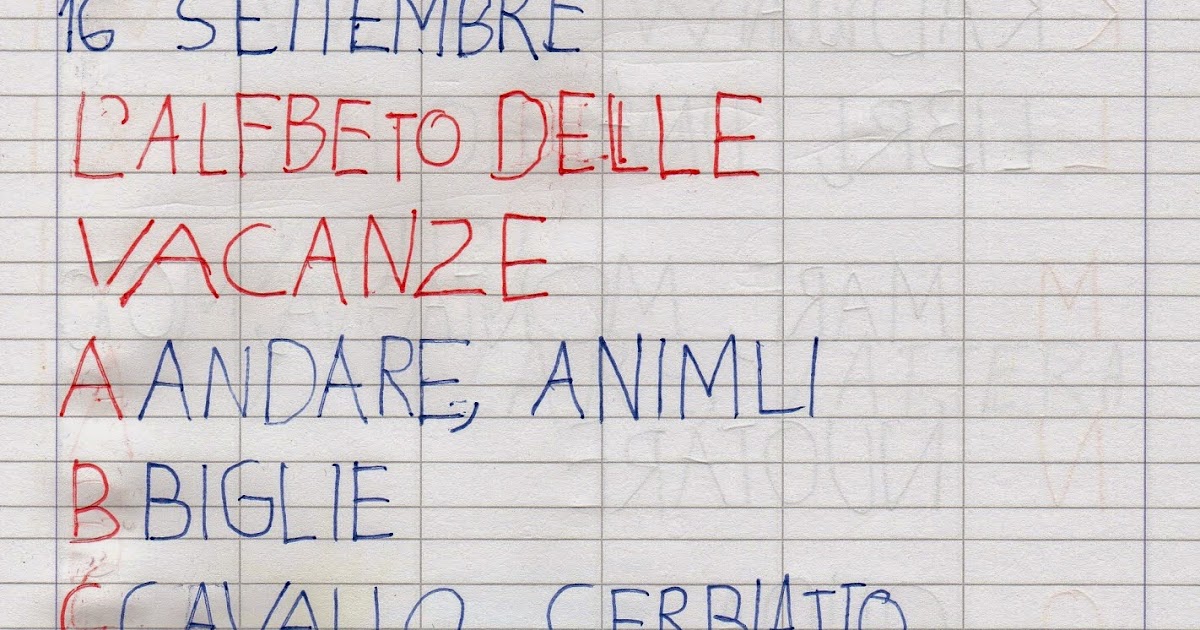 16 SETTEMBRE
L'ALFBETO DELLE
VACANZE
A ANDARE, ANIMLI
B BIGLIE
C CAVALLO CERBIATTO